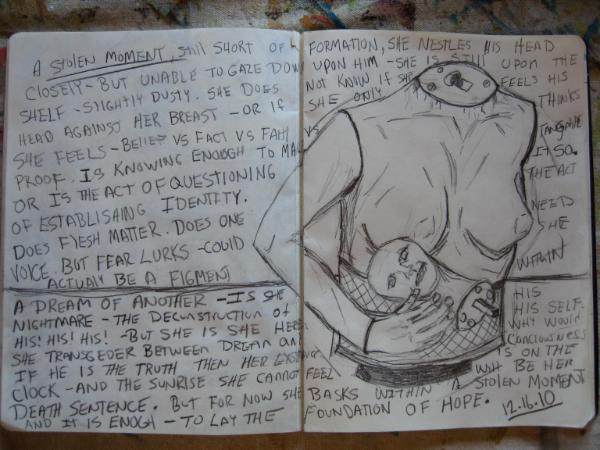 A STOLEN MOMENT, STILL SHORT OF FORMATION, SHE NESTLES HIS HEAD
CLOSELY - BUT UNABLE TO GAZE DOWN UPON HIM - SHE IS STILL UPON THE
SHELF - SLIGHTLY DUSTY. SHE DOES NOT KNOW IF SHE FEELS HIS
HEAD AGAINST HER BREAST - OR IF SHE ONLY THINKS
SHE FEELS - BELIEF VS FACT VS FAITH VS TANGIBLE
PROOF. IS KNOWING ENOUGH TO IT SO.
OR IS THE ACT OF QUESTIONING THE ACT
OF ESTABLISHING IDENTITY.
DOES FLESH MATTER. DOES ONE NEED
VOICE. BUT FEAR LURKS - COULD SHE
ACTUALLY BE A FIGMENT WITHIN
A DREAM OF ANOTHER - IS SHE HIS
NIGHTMARE - THE DECONSTRUCTION OF HIS SELF.
HIS! HIS! HIS! - BUT SHE IS SHE WHY WOULD
SHE TRANSGEDER BETWEEN DREAM CONCIOUSNESS
IF HE IS THE TRUTH THEN HER IS ON THE
CLOCK - AND THE SUNRISE SHE CANNOT FEEL BE HER
DEATH SENTENCE. BUT FOR NOW SHE BASKS WITHIN A STOLEN MOMENT
AND IT IS ENOGH - TO LAY THE FOUNDATION OF HOPE. 12.16.10